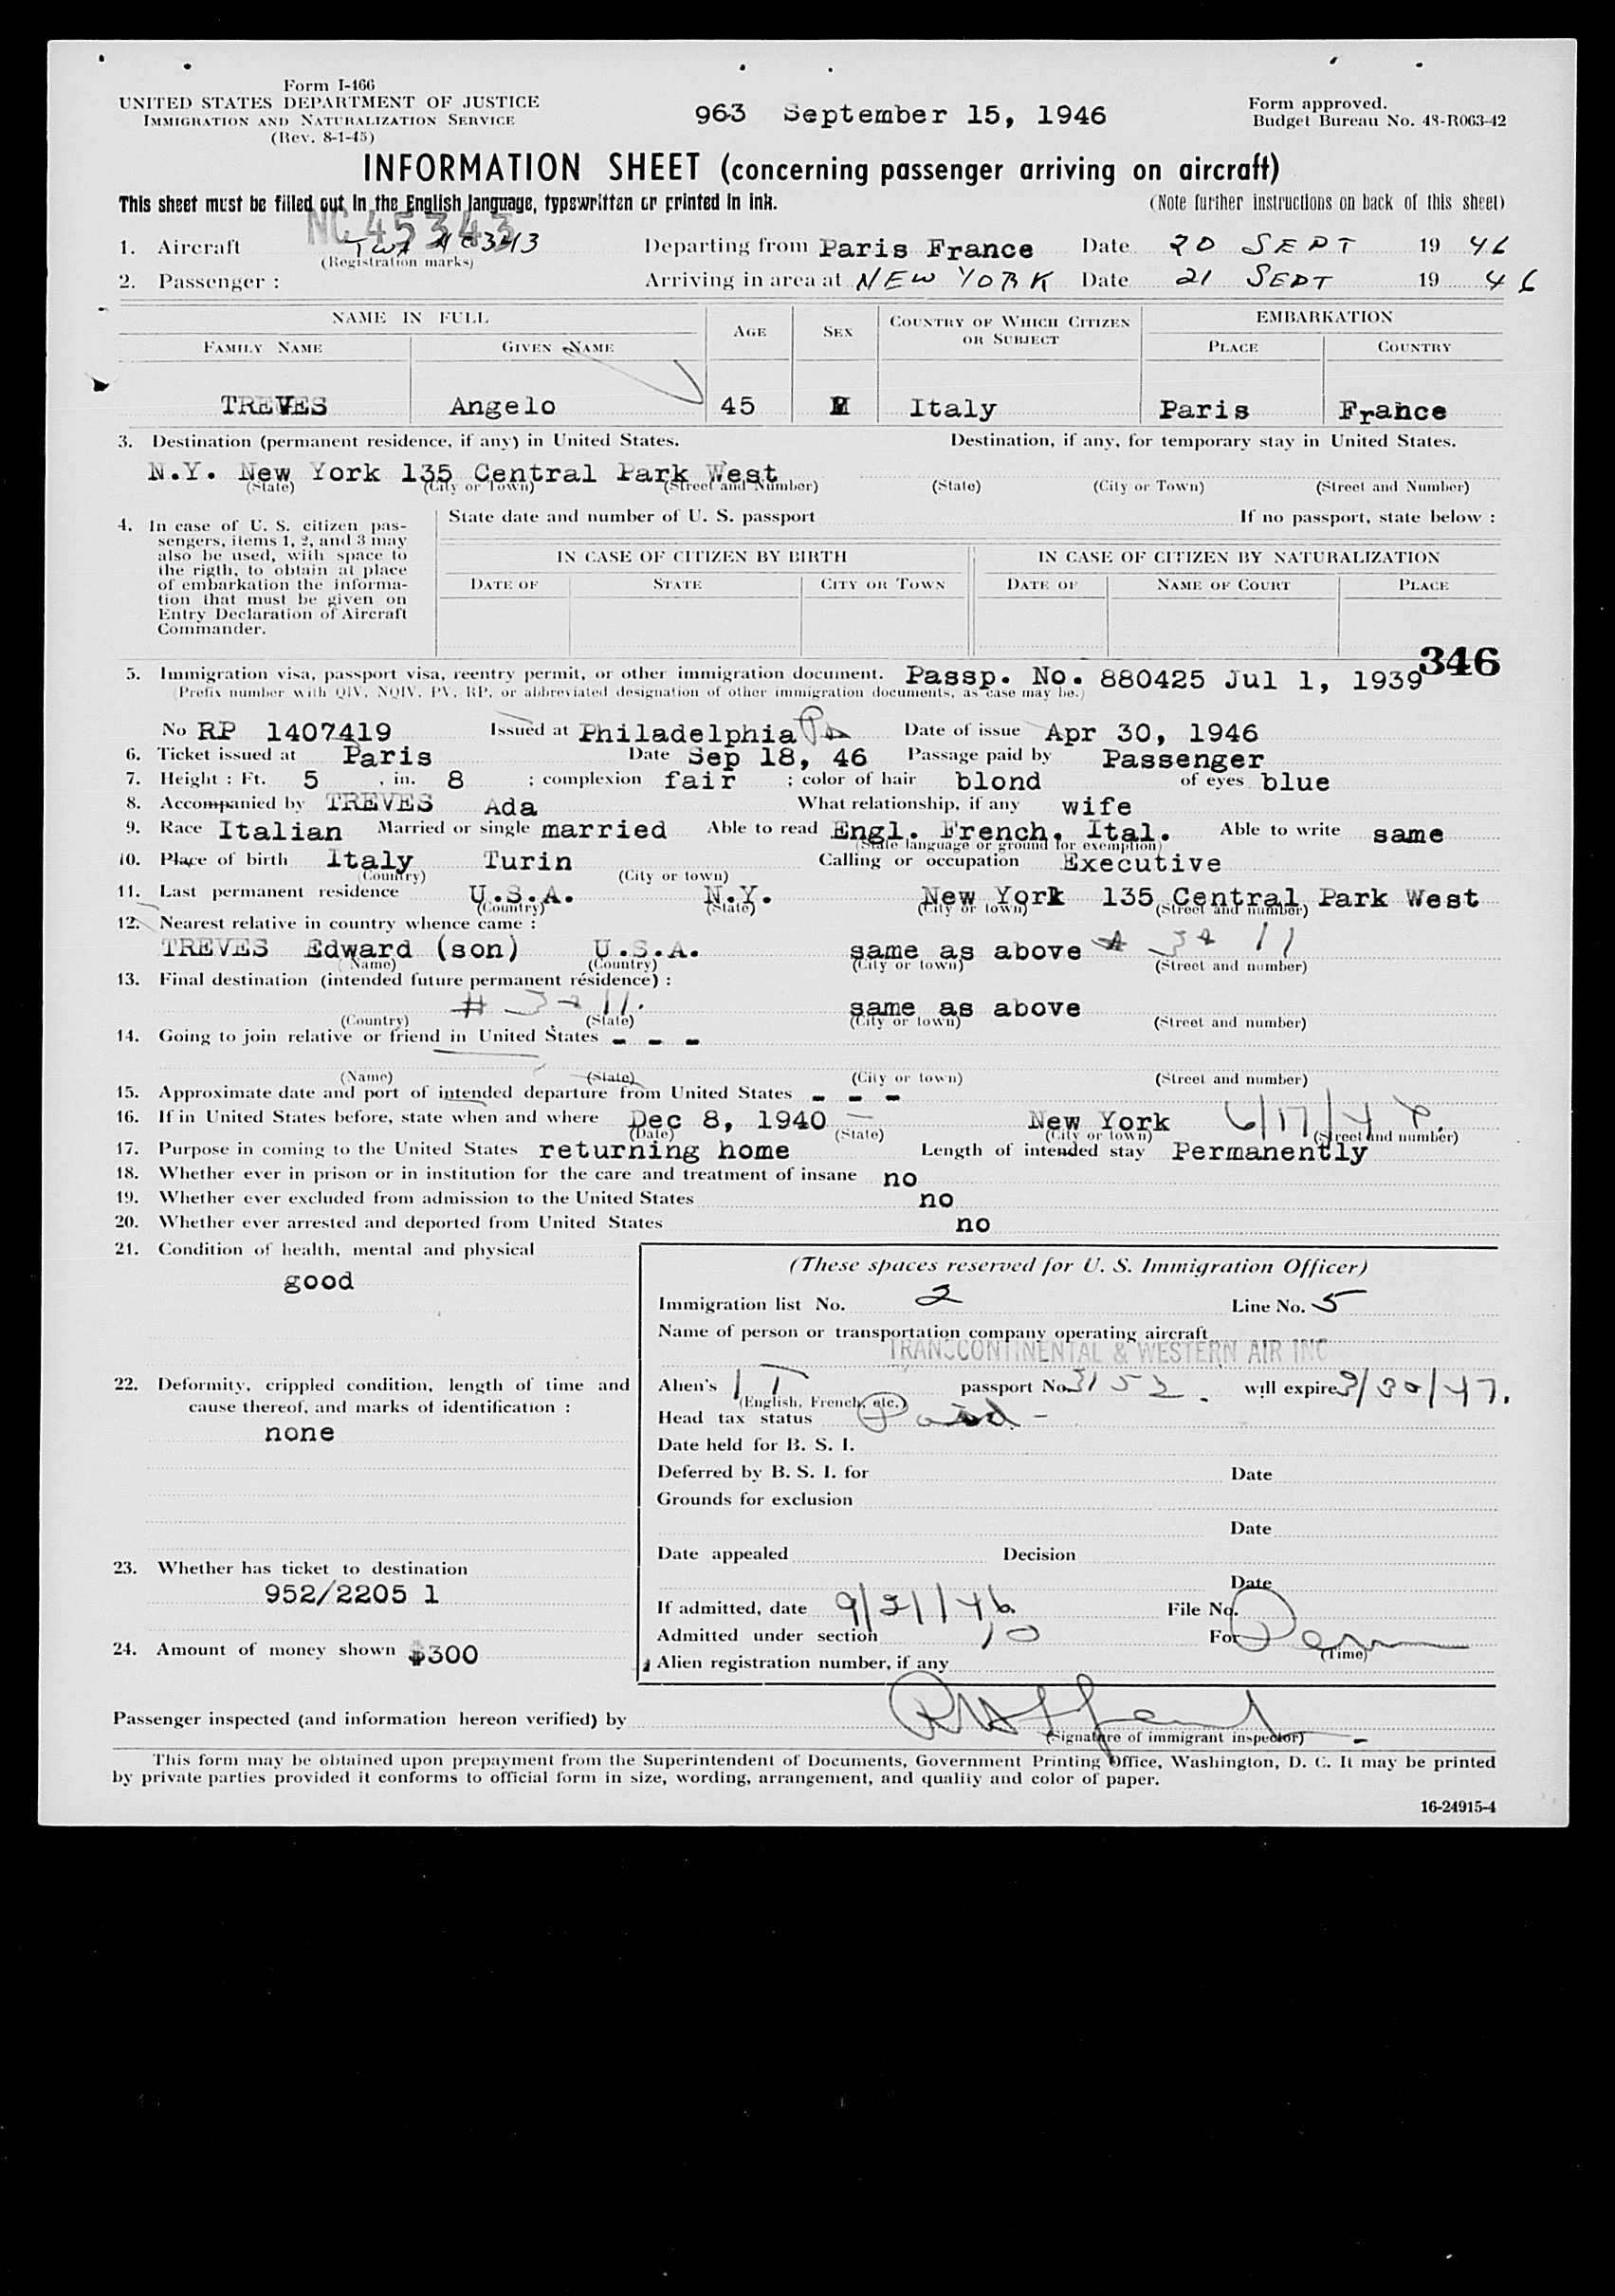 Form I-466
UNITED STATES DEPARTMENT OF JUSTICE
IMMIGRATION AND NATURALIZATION SERVICE
(Rev. 8-1-45)
963 September 15, 1946
Form approved.
Budget Bureau No. 43-R063-42
INFORMATION SHEET (concerning passenger arriving on aircraft)
This sheet must be filled out in the English language, typewritten or printed in ink.
(Note further instructions on back of this sheet)
NC 45343
1. Aircraft TWA NC343 Departing from Paris France Date 20 SEPT 19 46
(Registration marks)
2. Passenger : Arriving in area at NEW YORK Date 21 SEPT 19 46
NAME IN FULL AGE SEX COUNTRY OF WHICH CITIZEN OR SUBJECT EMBARKATION
FAMILY NAME GIVEN NAME PLACE COUNTRY
TREVES Angelo 45 M Italy Paris France
3. Destination (permanent residence, if any) in United States. Destination, if any, for temporary stay in United States.
N.Y. New York 135 Central Park West
(State) (City or Town) (Street and Number) (State) (City or Town) (Street and Number)
4. In case of U. S. citizen pas-
sengers, items 1, 2, and 3 may
also be used, with space to
the rigth, to obtain at place
of embarkation the informa-
tion that must be given on
Entry Declaration of Aircraft
Commander.
State date and number of U. S. passport If no passport, state below :
IN CASE OF CITIZEN BY BIRTH IN CASE OF CITIZEN BY NATURALIZATION
DATE OF STATE CITY OR TOWN DATE OF NAME OF COURT PLACE
346
5. Immigration visa, passport visa, reentry permit, or other immigration document. Passp. No. 880425 Jul 1, 1939
(Prefix number with QIV, NQIV, PV, RP, or abbreviated designation of other immigration documents, as case may be.)
No RP 1407419 Issued at Philadelphia Pa Date of issue Apr 30, 1946
6. Ticket issued at Paris Date Sep 18, 46 Passage paid by Passenger
7. Height : Ft. 5 , in. 8 ; complexion fair ; color of hair blond of eyes blue
8. Accompanied by TREVES Ada What relationship, if any wife
9. Race Italian Married or single married Able to read Engl. French. Ital. Able to write same
(State language or ground for exemption)
10. Place of birth Italy Turin Calling or occupation Executive
(Country) (City or town)
11. Last permanent residence U.S.A. N.Y. New York 135 Central Park West
(Country) (State) (City or town) (Street and number)
12. Nearest relative in country whence came :
TREVES Edward (son) U.S.A. same as above # 3 11
(Name) (Country) (City or town) (Street and number)
13. Final destination (intended future permanent résidence) :
# 3 11. same as above
(Country) (State) (City or town) (Street and number)
14. Going to join relative or friend in United States - - -
(Name) (State) (City or town) (Street and number)
15. Approximate date and port of intended departure from United States - - -
16. If in United States before, state when and where Dec 8, 1940 New York 6/17/4
(Date) (State) (City or town) (Street and number)
17. Purpose in coming to the United States returning home Length of intended stay Permanently
18. Whether ever in prison or in institution for the care and treatment of insane no
19. Whether ever excluded from admission to the United States no
20. Whether ever arrested and deported from United States no
21. Condition of health, mental and physical
good
22. Deformity, crippled condition, length of time and
cause thereof, and marks of identification :
none
23. Whether has ticket to destination
952/2205 1
24. Amount of money shown $300
(These spaces reserved for U. S. Immigration Officer)
Immigration list No. 2 Line No. 5
Name of person or transportation company operating aircraft
TRANSCONTINENTAL & WESTERN AIR INC
Alien's IT passport No. 3152. will expire 3/30/47.
(English, French, etc.)
Head tax status Paid -
Date held for B. S. I.
Deferred by B. S. I. for Date
Grounds for exclusion
Date
Date appealed Decision
Date
If admitted, date 9/21/46 File No.
Admitted under section For Perm
(Time)
Alien registration number, if any
Passenger inspected (and information hereon verified) by
(Signature of immigrant inspector)
This form may be obtained upon prepayment from the Superintendent of Documents, Government Printing Office, Washington, D. C. It may be printed
by private parties provided it conforms to official form in size, wording, arrangement, and quality and color of paper.
16-24915-4